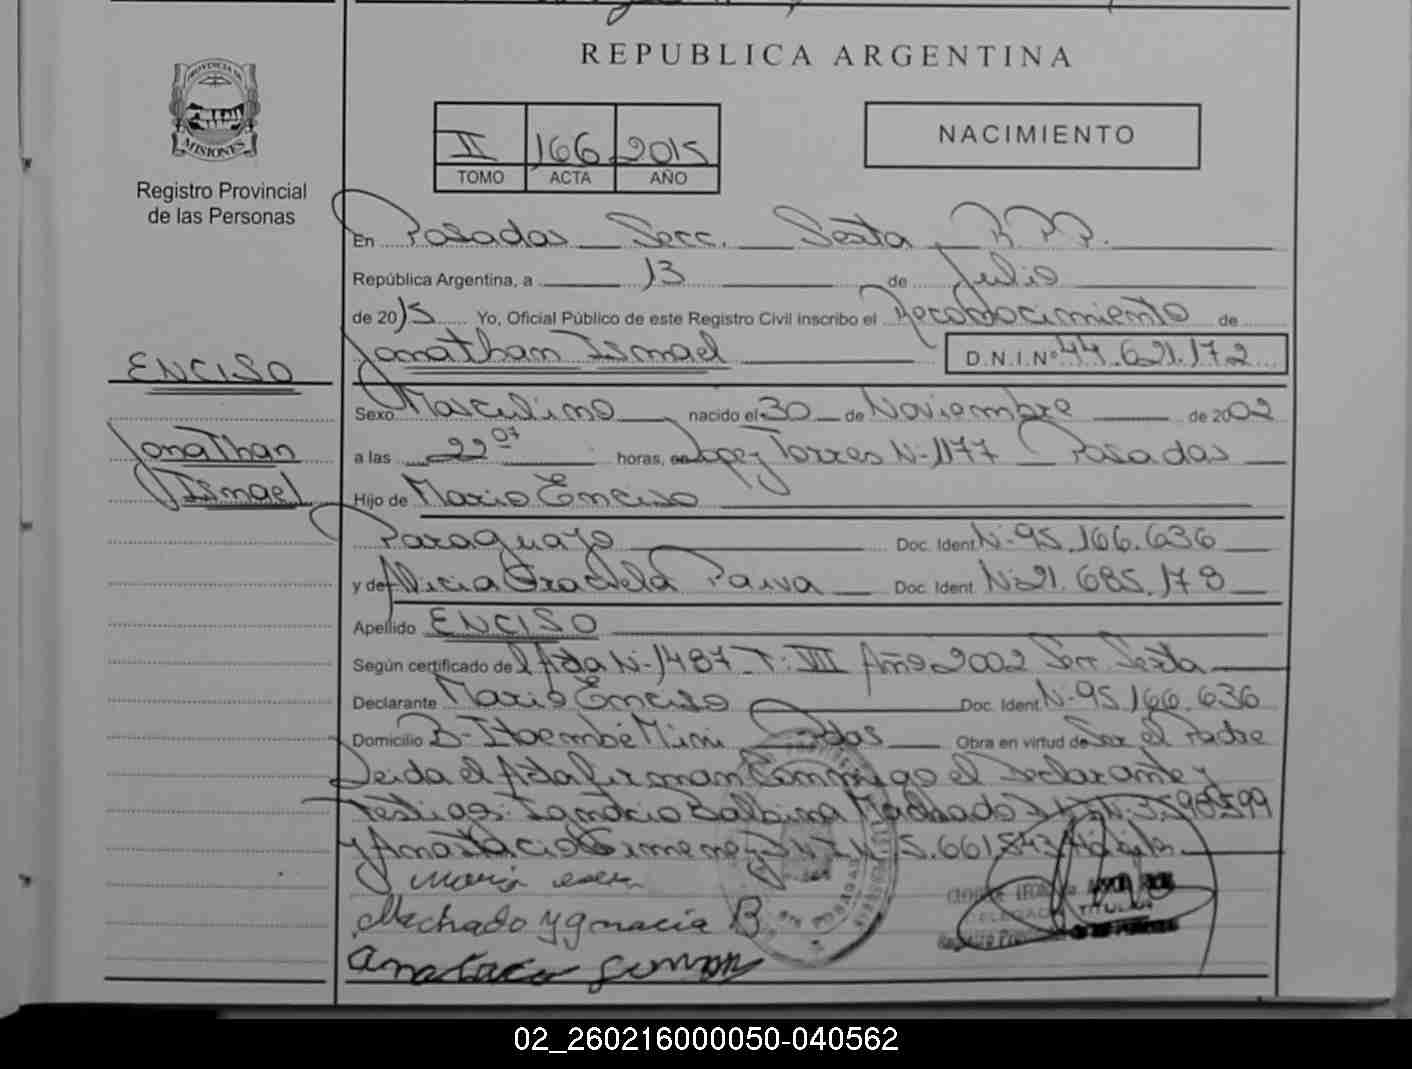 REPUBLICA ARGENTINA
PROVINCIA DE
MISIONES
Registro Provincial
de las Personas
II 166 2015
TOMO ACTA AÑO
NACIMIENTO
En Posadas Secc. Sexta R.P.P.
República Argentina, a 13 de Julio
de 2015 Yo, Oficial Público de este Registro Civil inscribo el Reconocimiento de
Jonathan Ismael D.N.I.Nº 44.621.172
ENCISO
Jonathan
Ismael
Sexo Masculino nacido el 30 de Noviembre de 2002
a las 22 07 horas, en Lopez Torres N-1177 Posadas
Hijo de Mario Enciso
Paraguayo Doc. Ident. N-95.166.636
y de Alicia Graciela Paiva Doc. Ident. N-21.685.178
Apellido ENCISO
Según certificado del Acta N-1487 T: VII Año 2002 Secc. Sexta
Declarante Mario Enciso Doc. Ident. N-95.166.636
Domicilio B- Itaembé Mini Pdas Obra en virtud de Ser el Padre
Leida el Acta firman Conmigo el Declarante y
Testigos: Ignacio Balbina Machado
y Anastacio Gimenez D.N.I.N-
Machado Ygnacia B